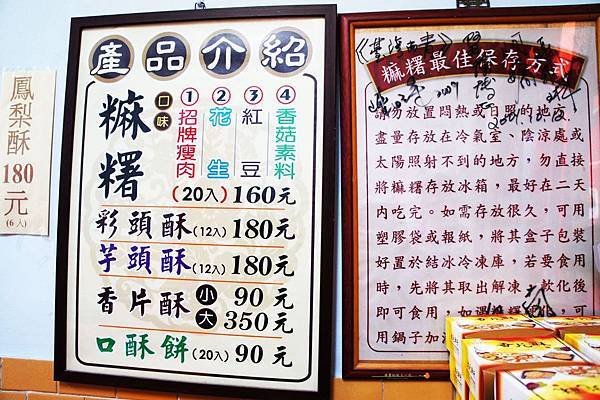 鳳梨酥180元
(6人)
產品介紹
麻糬
口味
①招牌瘦肉
②花生
③紅豆
④香菇素料
(20入)160元
彩頭酥(12入)180元
芋頭酥(12入)180元
香片酥 小 90元
大 350元
口酥餅(20入)90元
麻糬最佳保存方式
請勿放置悶熱或日照的地方
盡量存放在冷氣室、陰涼處或
太陽照射不到的地方,勿直接
將麻糬存放冰箱,最好在二天
內吃完。如需存放很久,可用
塑膠袋或報紙,將其盒子包裝
好置於結冰冷凍庫,若要食用
時,先將其取出解凍,軟化後
即可食用,如
可
用鍋子加